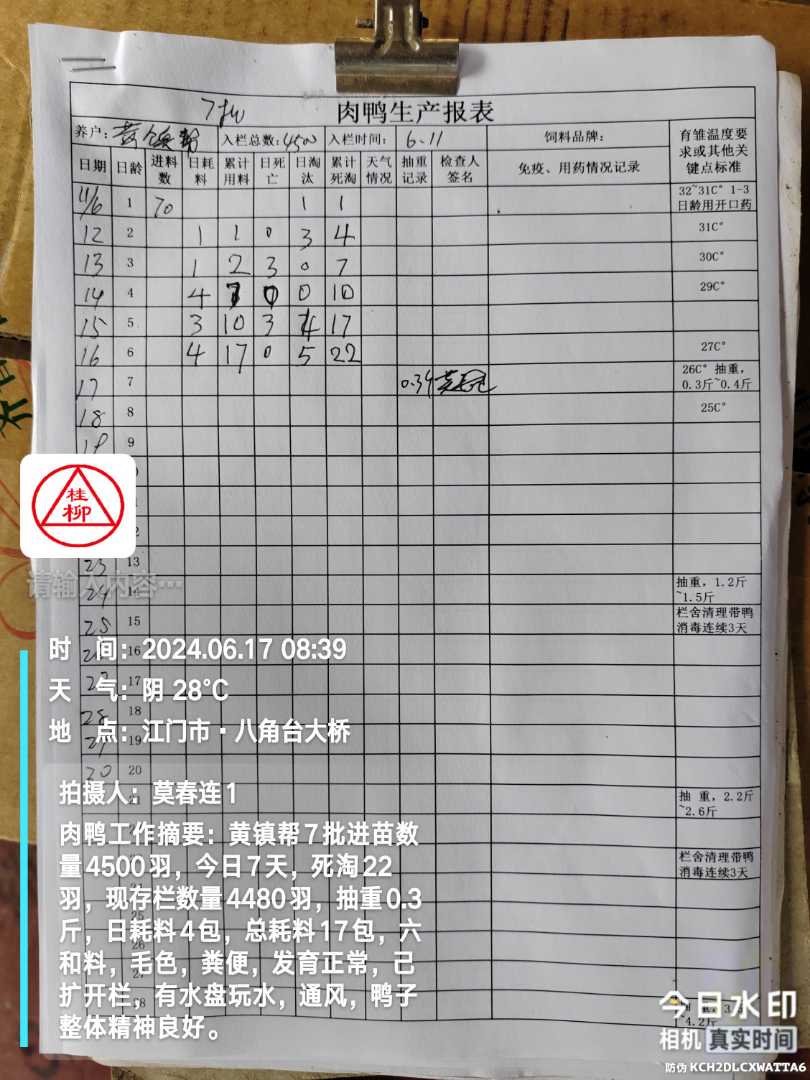 7批
肉鸭生产报表
养户: 黄镇帮 入栏总数: 4500 入栏时间: 6.11 饲料品牌: 育雏温度要求或其他关键点标准
日期 日龄 进料数 日耗料 累计用料 日死亡 日淘汰 累计死淘 天气情况 抽重记录 检查人签名 免疫、用药情况记录
11/6 1 70 1 1 32~31C° 1-3日龄用开口药
12 2 1 1 0 3 4 31C°
13 3 1 2 3 0 7 30C°
14 4 4 0 10 29C°
15 5 3 10 3 4 17
16 6 4 17 0 5 22 27C°
17 7 0.34 26C° 抽重，0.3斤~0.4斤
18 8 25C°
19 9
桂柳
23 13
请输入内容…
24 14 抽重，1.2斤~1.5斤
25 15 栏舍清理带鸭消毒连续3天
16
时 间：2024.06.17 08:39
17
天 气：阴 28°C
28 18
地 点：江门市·八角台大桥
19
20
拍摄人：莫春连1
抽 重，2.2斤~2.6斤
肉鸭工作摘要：黄镇帮7批进苗数
量4500羽，今日7天，死淘22
栏舍清理带鸭消毒连续3天
羽，现存栏数量4480羽，抽重0.3
斤，日耗料4包，总耗料17包，六
和料，毛色，粪便，发育正常，己
扩开栏，有水盘玩水，通风，鸭子
整体精神良好。
4.2斤
今日水印
相机 真实时间
防伪 KCH2DLCXWATTA6